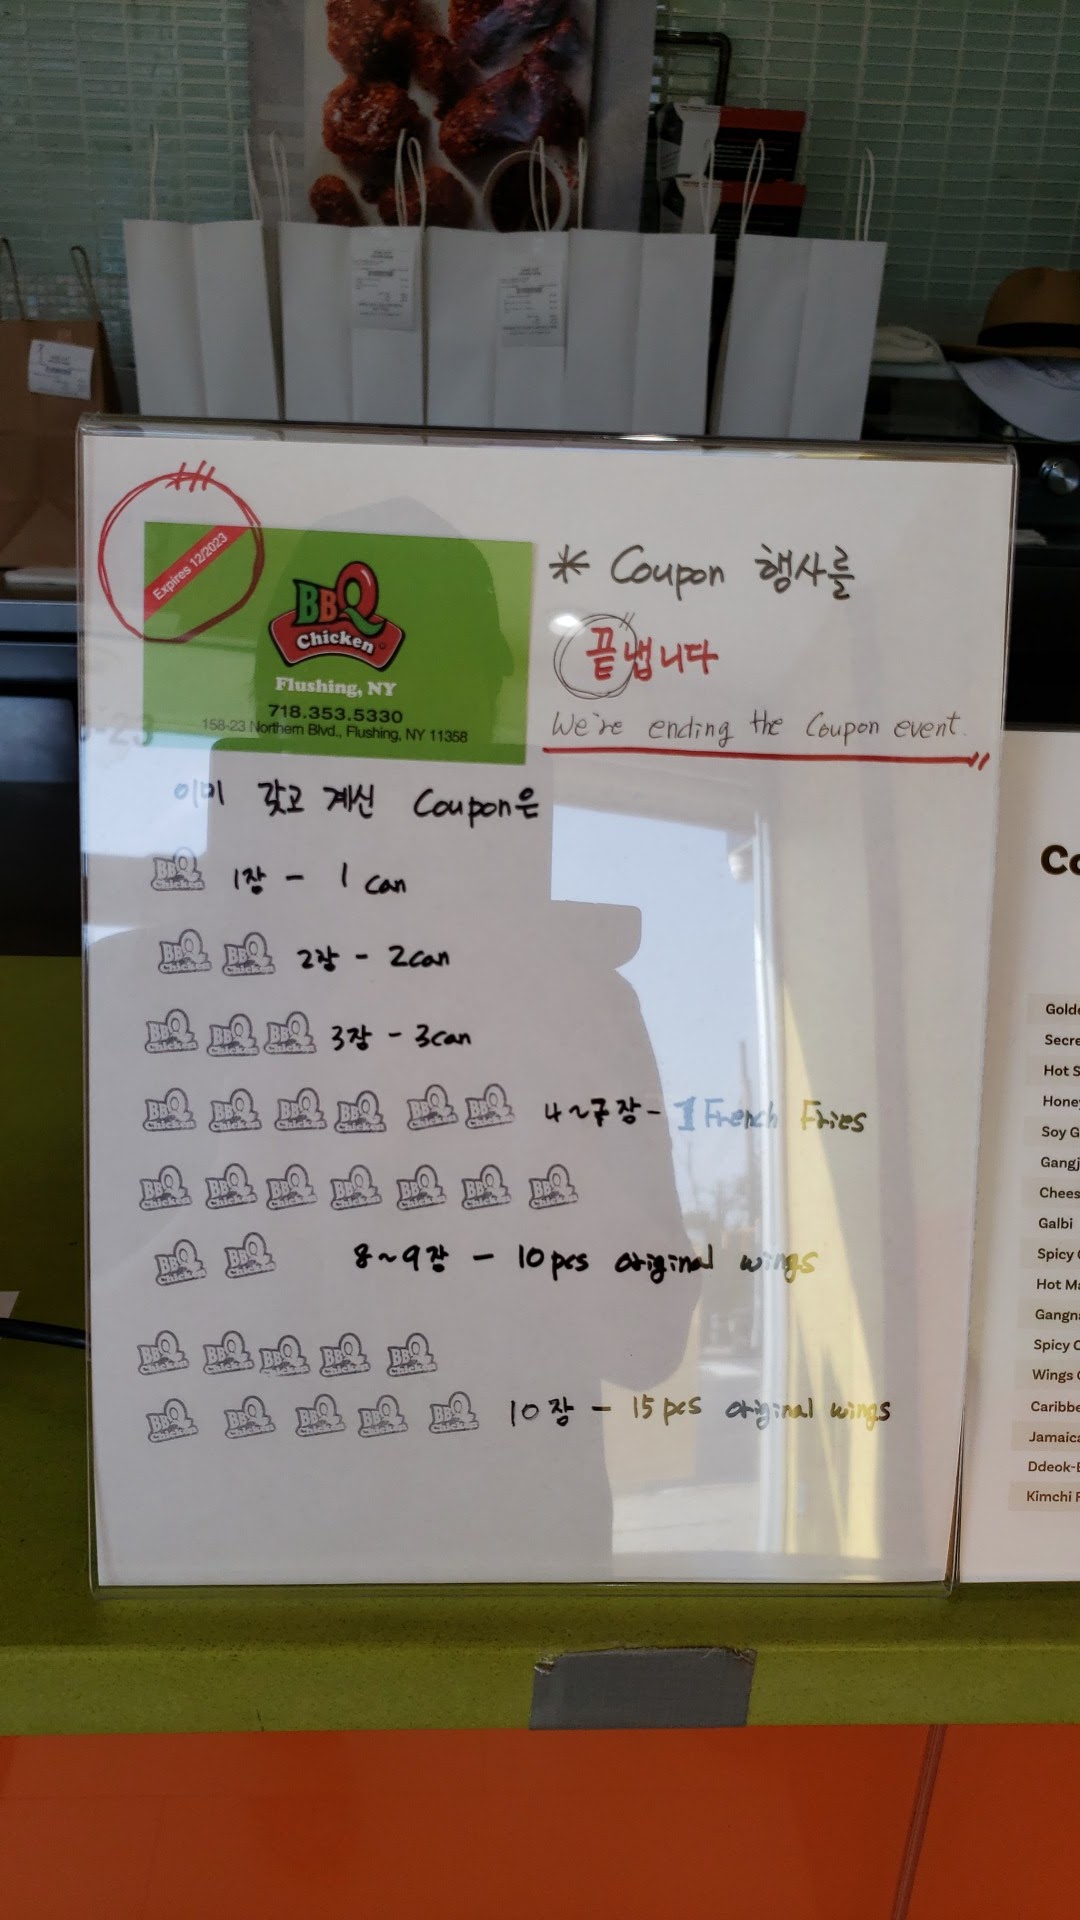 Expires 12/2023
BBQ
Chicken
Flushing, NY
718.353.5330
158-23 Northern Blvd., Flushing, NY 11358
* Coupon 행사를
끝냅니다
We're ending the Coupon event.
이미 갖고 계신 Coupon은
BBQ Chicken 1장 - 1 can
BBQ Chicken BBQ Chicken 2장 - 2can
BBQ Chicken BBQ Chicken BBQ Chicken 3장 - 3can
BBQ Chicken BBQ Chicken BBQ Chicken BBQ Chicken BBQ Chicken BBQ Chicken 4~7장 - 1 French Fries
BBQ Chicken BBQ Chicken BBQ Chicken BBQ Chicken BBQ Chicken BBQ Chicken BBQ Chicken
BBQ Chicken BBQ Chicken 8~9장 - 10pcs original wings
BBQ Chicken BBQ Chicken BBQ Chicken BBQ Chicken BBQ Chicken
BBQ Chicken BBQ Chicken BBQ Chicken BBQ Chicken BBQ Chicken 10장 - 15pcs original wings
Hot S
Soy G
Galbi
Spicy
Hot
Spicy C
Wings